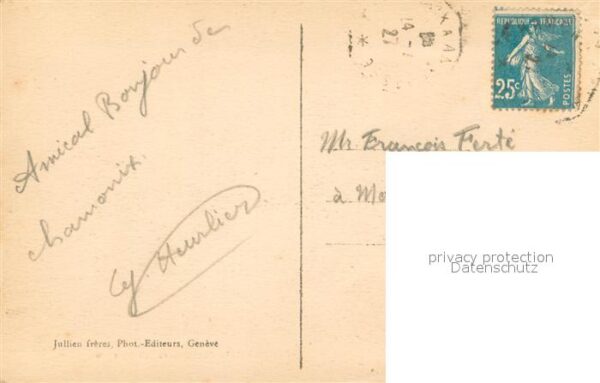 Amical Bonjour de
chamonix.
Jullien frères, Phot.-Editeurs, Genève
14-
27
REPUBLIQUE FRANÇAISE
25c
POSTES
Mr François Ferté
à
privacy protection
Datenschutz